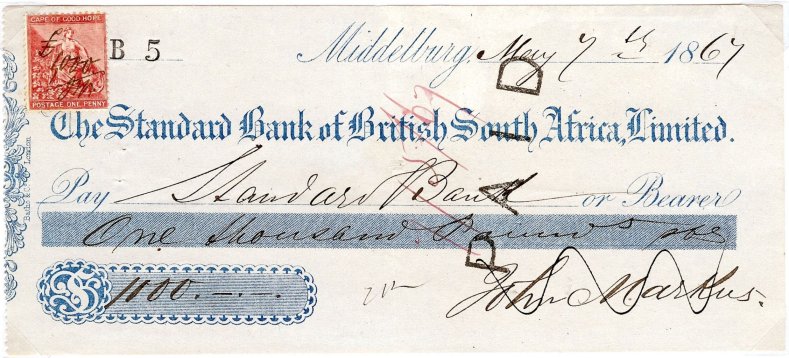 CAPE OF GOOD HOPE
£
POSTAGE ONE PENNY
B 5
Middelburg, May 7th 1867
The Standard Bank of British South Africa, Limited.
Pay Standard Bank or Bearer
One thousand Pounds
PAID
John Markus.